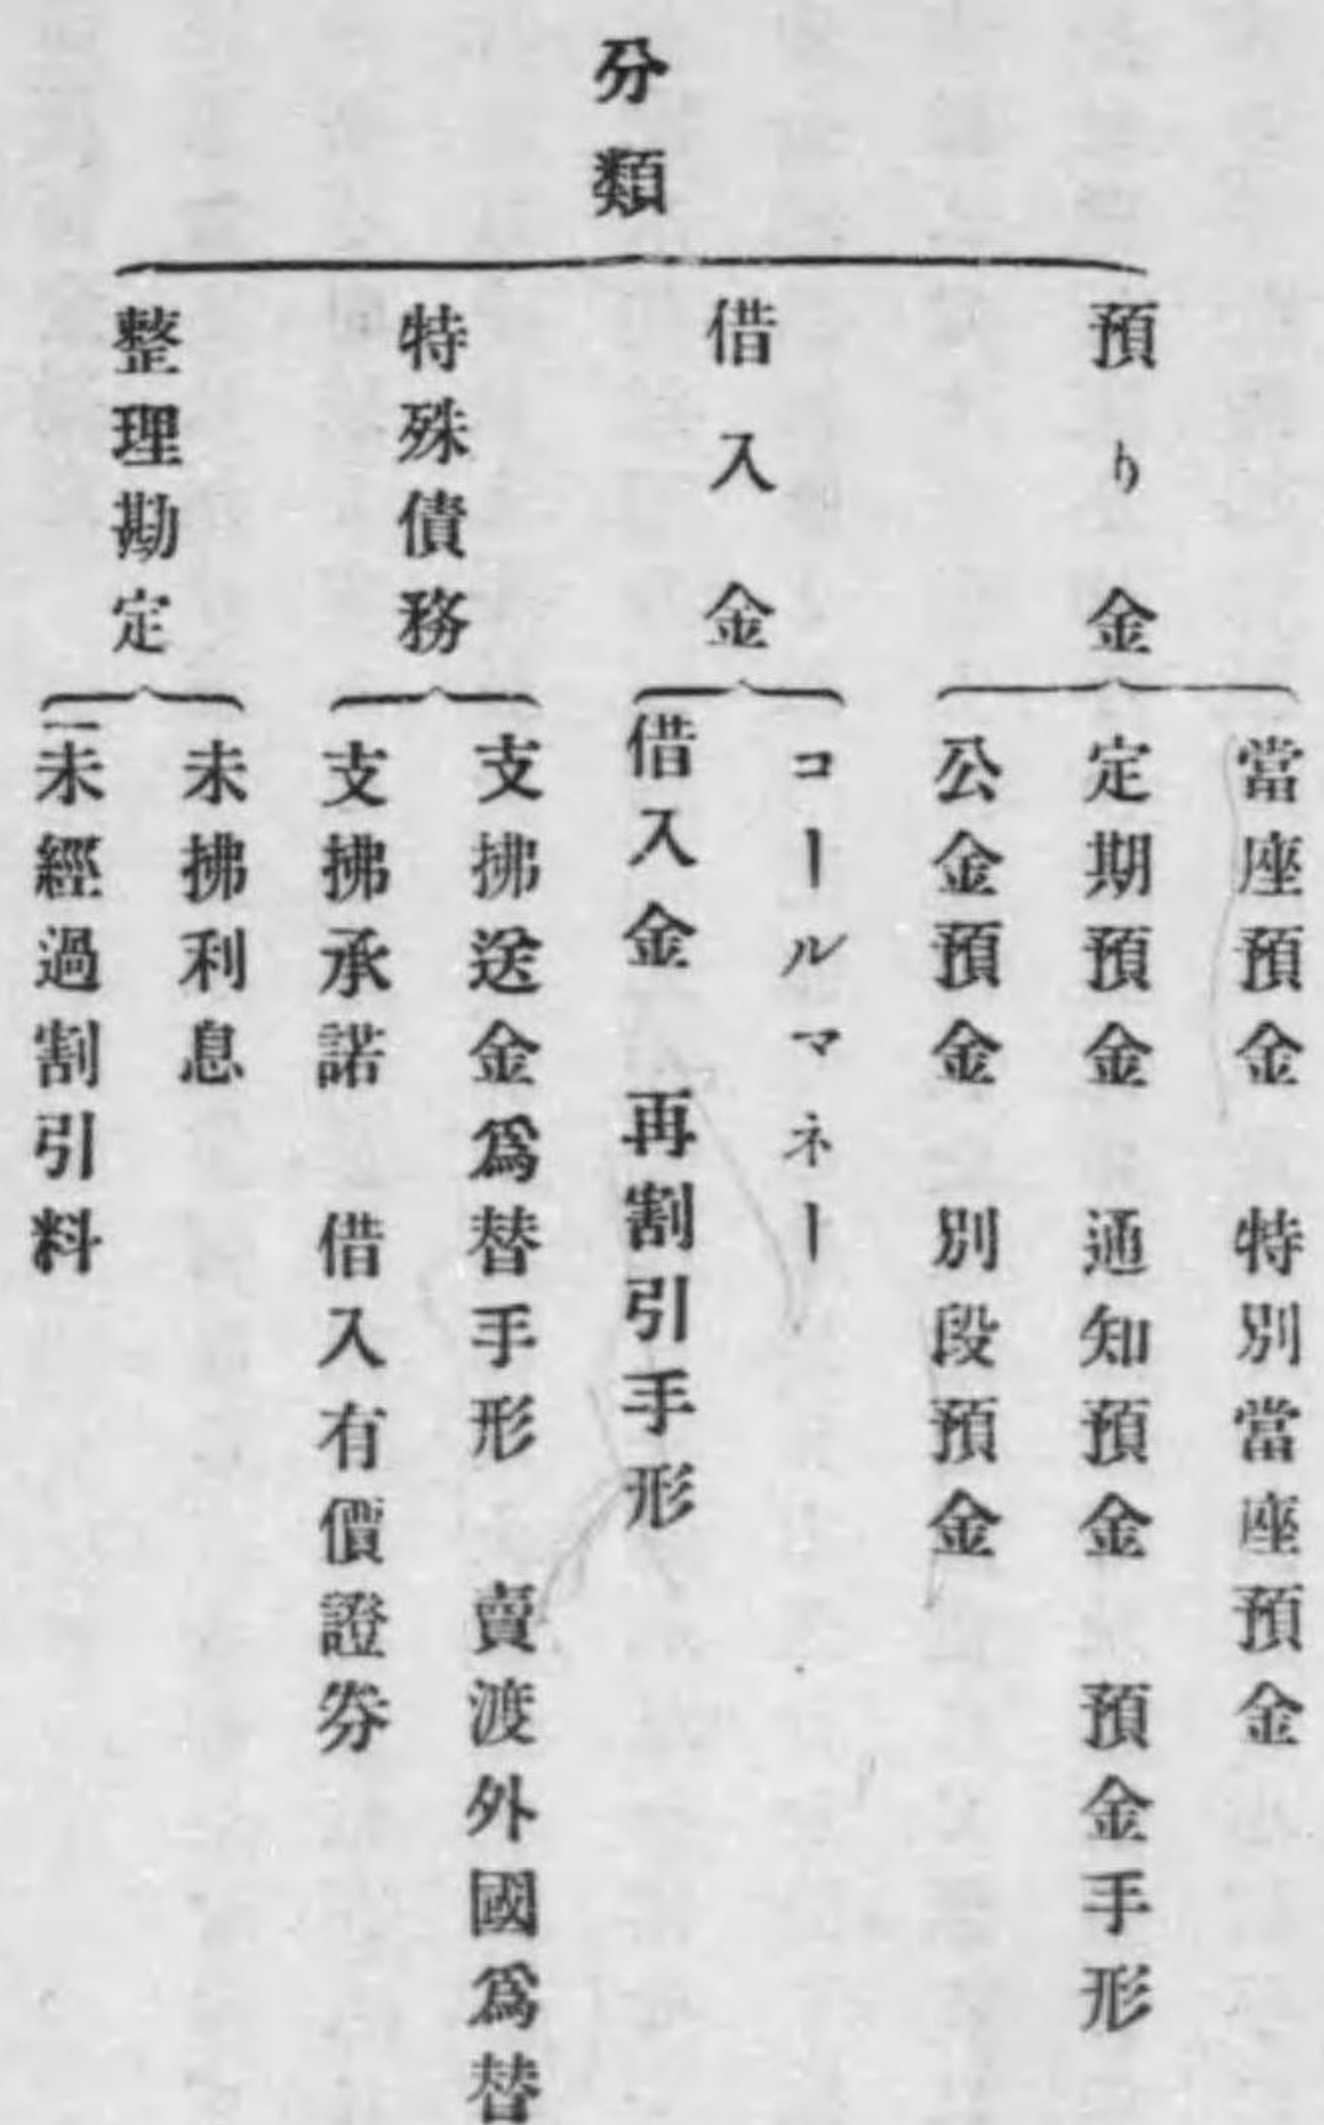 分類
預り金
當座預金　特別當座預金
定期預金　通知預金　預金手形
公金預金　別段預金
借入金
コールマネー
借入金　再割引手形
特殊債務
支拂送金爲替手形　賣渡外國爲替
支拂承諾　借入有價證券
整理勘定
未拂利息
未經過割引料